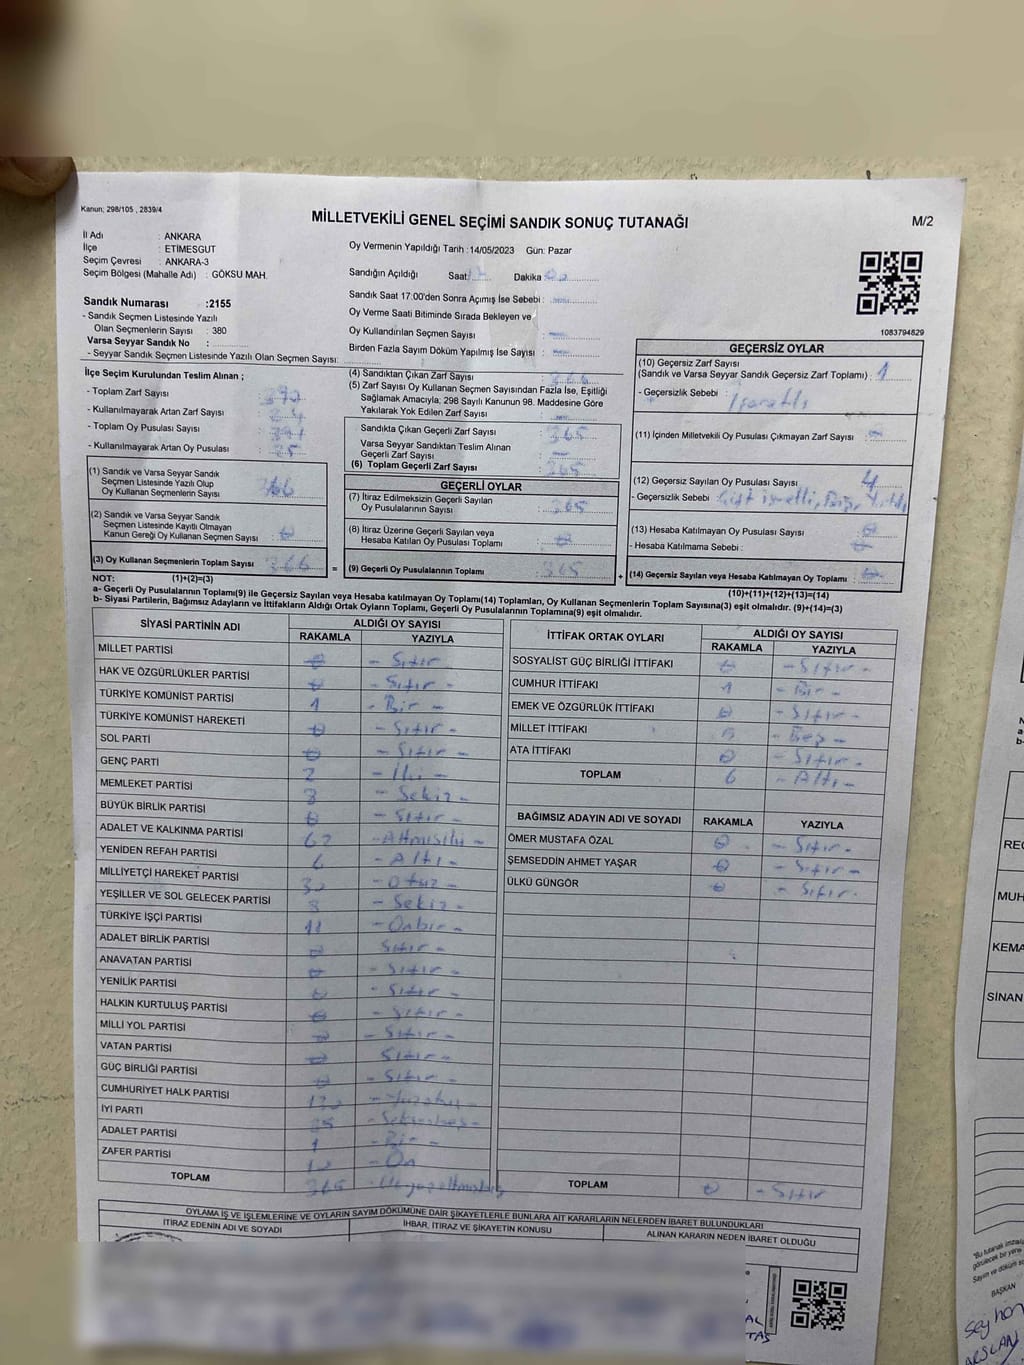 Kanun; 298/105 , 2839/4
MİLLETVEKİLİ GENEL SEÇİMİ SANDIK SONUÇ TUTANAĞI
M/2
İl Adı : ANKARA
İlçe : ETİMESGUT
Seçim Çevresi : ANKARA-3
Seçim Bölgesi (Mahalle Adı) : GÖKSU MAH.
Oy Vermenin Yapıldığı Tarih :14/05/2023 Gün: Pazar
Sandığın Açıldığı Saat: Dakika
Sandık Saat 17:00'den Sonra Açımış İse Sebebi :
Oy Verme Saati Bitiminde Sırada Bekleyen ve
Oy Kullandırılan Seçmen Sayısı
Birden Fazla Sayım Döküm Yapılmış İse Sayısı :
1083794829
Sandık Numarası :2155
- Sandık Seçmen Listesinde Yazılı
Olan Seçmenlerin Sayısı : 380
Varsa Seyyar Sandık No :
- Seyyar Sandık Seçmen Listesinde Yazılı Olan Seçmen Sayısı:
İlçe Seçim Kurulundan Teslim Alınan ;
- Toplam Zarf Sayısı :
- Kullanılmayarak Artan Zarf Sayısı :
- Toplam Oy Pusulası Sayısı :
- Kullanılmayarak Artan Oy Pusulası :
(1) Sandık ve Varsa Seyyar Sandık
Seçmen Listesinde Yazılı Olup
Oy Kullanan Seçmenlerin Sayısı 366
(2) Sandık ve Varsa Seyyar Sandık
Seçmen Listesinde Kayıtlı Olmayan
Kanun Gereği Oy Kullanan Seçmen Sayısı : 0
(3) Oy Kullanan Seçmenlerin Toplam Sayısı 366
(4) Sandıktan Çıkan Zarf Sayısı : 366
(5) Zarf Sayısı Oy Kullanan Seçmen Sayısından Fazla İse, Eşitliği
Sağlamak Amacıyla; 298 Sayılı Kanunun 98. Maddesine Göre
Yakılarak Yok Edilen Zarf Sayısı :
Sandıkta Çıkan Geçerli Zarf Sayısı : 365
Varsa Seyyar Sandıktan Teslim Alınan
Geçerli Zarf Sayısı :
(6) Toplam Geçerli Zarf Sayısı : 365
GEÇERLİ OYLAR
(7) İtiraz Edilmeksizin Geçerli Sayılan
Oy Pusulalarının Sayısı : 365
(8) İtiraz Üzerine Geçerli Sayılan veya
Hesaba Katılan Oy Pusulası Toplamı : 0
= (9) Geçerli Oy Pusulalarının Toplamı : 365 +
GEÇERSİZ OYLAR
(10) Geçersiz Zarf Sayısı
(Sandık ve Varsa Seyyar Sandık Geçersiz Zarf Toplamı) : 1
- Geçersizlik Sebebi :
(11) İçinden Milletvekili Oy Pusulası Çıkmayan Zarf Sayısı :
(12) Geçersiz Sayılan Oy Pusulası Sayısı : 4
- Geçersizlik Sebebi :
(13) Hesaba Katılmayan Oy Pusulası Sayısı : 0
- Hesaba Katılmama Sebebi :
(14) Geçersiz Sayılan veya Hesaba Katılmayan Oy Toplamı :
NOT: (1)+(2)=(3)
(10)+(11)+(12)+(13)=(14)
a- Geçerli Oy Pusulalarının Toplamı(9) ile Geçersiz Sayılan veya Hesaba katılmayan Oy Toplamı(14) Toplamları, Oy Kullanan Seçmenlerin Toplam Sayısına(3) eşit olmalıdır. (9)+(14)=(3)
b- Siyasi Partilerin, Bağımsız Adayların ve İttifakların Aldığı Ortak Oyların Toplamı, Geçerli Oy Pusulalarının Toplamına(9) eşit olmalıdır.
SİYASİ PARTİNİN ADI ALDIĞI OY SAYISI
RAKAMLA YAZIYLA
MİLLET PARTİSİ 0 - Sıfır
HAK VE ÖZGÜRLÜKLER PARTİSİ 0 - Sıfır -
TÜRKİYE KOMÜNİST PARTİSİ 1 - Bir -
TÜRKİYE KOMÜNİST HAREKETİ 0 - Sıfır -
SOL PARTİ 0 - Sıfır -
GENÇ PARTİ 2 - İki -
MEMLEKET PARTİSİ 8 - Sekiz -
BÜYÜK BİRLİK PARTİSİ 0 - Sıfır -
ADALET VE KALKINMA PARTİSİ 62 - Altmışiki -
YENİDEN REFAH PARTİSİ 6 - Altı -
MİLLİYETÇİ HAREKET PARTİSİ 30 - Otuz -
YEŞİLLER VE SOL GELECEK PARTİSİ 8 - Sekiz -
TÜRKİYE İŞÇİ PARTİSİ 11 - Onbir -
ADALET BİRLİK PARTİSİ 0 Sıfır -
ANAVATAN PARTİSİ 0 - Sıfır -
YENİLİK PARTİSİ 0 - Sıfır -
HALKIN KURTULUŞ PARTİSİ 0 - Sıfır -
MİLLİ YOL PARTİSİ 0 - Sıfır -
VATAN PARTİSİ 0 Sıfır -
GÜÇ BİRLİĞİ PARTİSİ 0 - Sıfır -
CUMHURİYET HALK PARTİSİ
İYİ PARTİ
ADALET PARTİSİ 1 - Bir -
ZAFER PARTİSİ 10 - On
TOPLAM 365
İTTİFAK ORTAK OYLARI ALDIĞI OY SAYISI
RAKAMLA YAZIYLA
SOSYALİST GÜÇ BİRLİĞİ İTTİFAKI 0 - Sıfır -
CUMHUR İTTİFAKI 1 - Bir -
EMEK VE ÖZGÜRLÜK İTTİFAKI 0 - Sıfır -
MİLLET İTTİFAKI 5 - Beş -
ATA İTTİFAKI 0 - Sıfır -
TOPLAM 6 - Altı -
BAĞIMSIZ ADAYIN ADI VE SOYADI RAKAMLA YAZIYLA
ÖMER MUSTAFA ÖZAL 0 - Sıfır -
ŞEMSEDDİN AHMET YAŞAR 0 - Sıfır -
ÜLKÜ GÜNGÖR 0 - Sıfır -
TOPLAM 0 - Sıfır
OYLAMA İŞ VE İŞLEMLERİNE VE OYLARIN SAYIM DÖKÜMÜNE DAİR ŞİKAYETLERLE BUNLARA AİT KARARLARIN NELERDEN İBARET BULUNDUKLARI
İTİRAZ EDENİN ADI VE SOYADI İHBAR, İTİRAZ VE ŞİKAYETİN KONUSU ALINAN KARARIN NEDEN İBARET OLDUĞU
MUH
KEMA
SİNAN
BAŞKAN